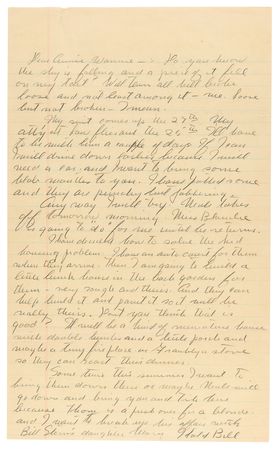 Dear Annie Jeannie — : Do you know
the sky is falling and a piece of it fell
on my tail? Well leven all hell broke
loose and not least among it — me. Loose
but not broken — I mean.
My suit comes up the 27th. My
atty at San fles and the 25th I'll have
to be with him a couple of days. If I can
I will drive down farther because I will
need a car and I want to bring some
to you. I have bottled some
and they are
Any way I will try. Neale takes
off tomorrow morning. Miss Blanche
is going to "do" for me until he returns.
I have devised how to solve the kid
housing problem. I have an auto court for them
when they arrive. Then I am going to build a
little bunk house in the back garden for
them — very rough and theirs. And they can
help build it and paint it so it will be
really theirs. Don't you think that is
good? It will be a kind of miniature house
with double bunks and a little porch and
maybe a tiny fire place or Franklyn stove
so they can toast their dinner.
Some time this summer I want to
bring them down there or maybe Neale will
go down and bring you and take them
because Thom is a push over for a blonde
and I want to break up his affair with
Bill Steins daughter